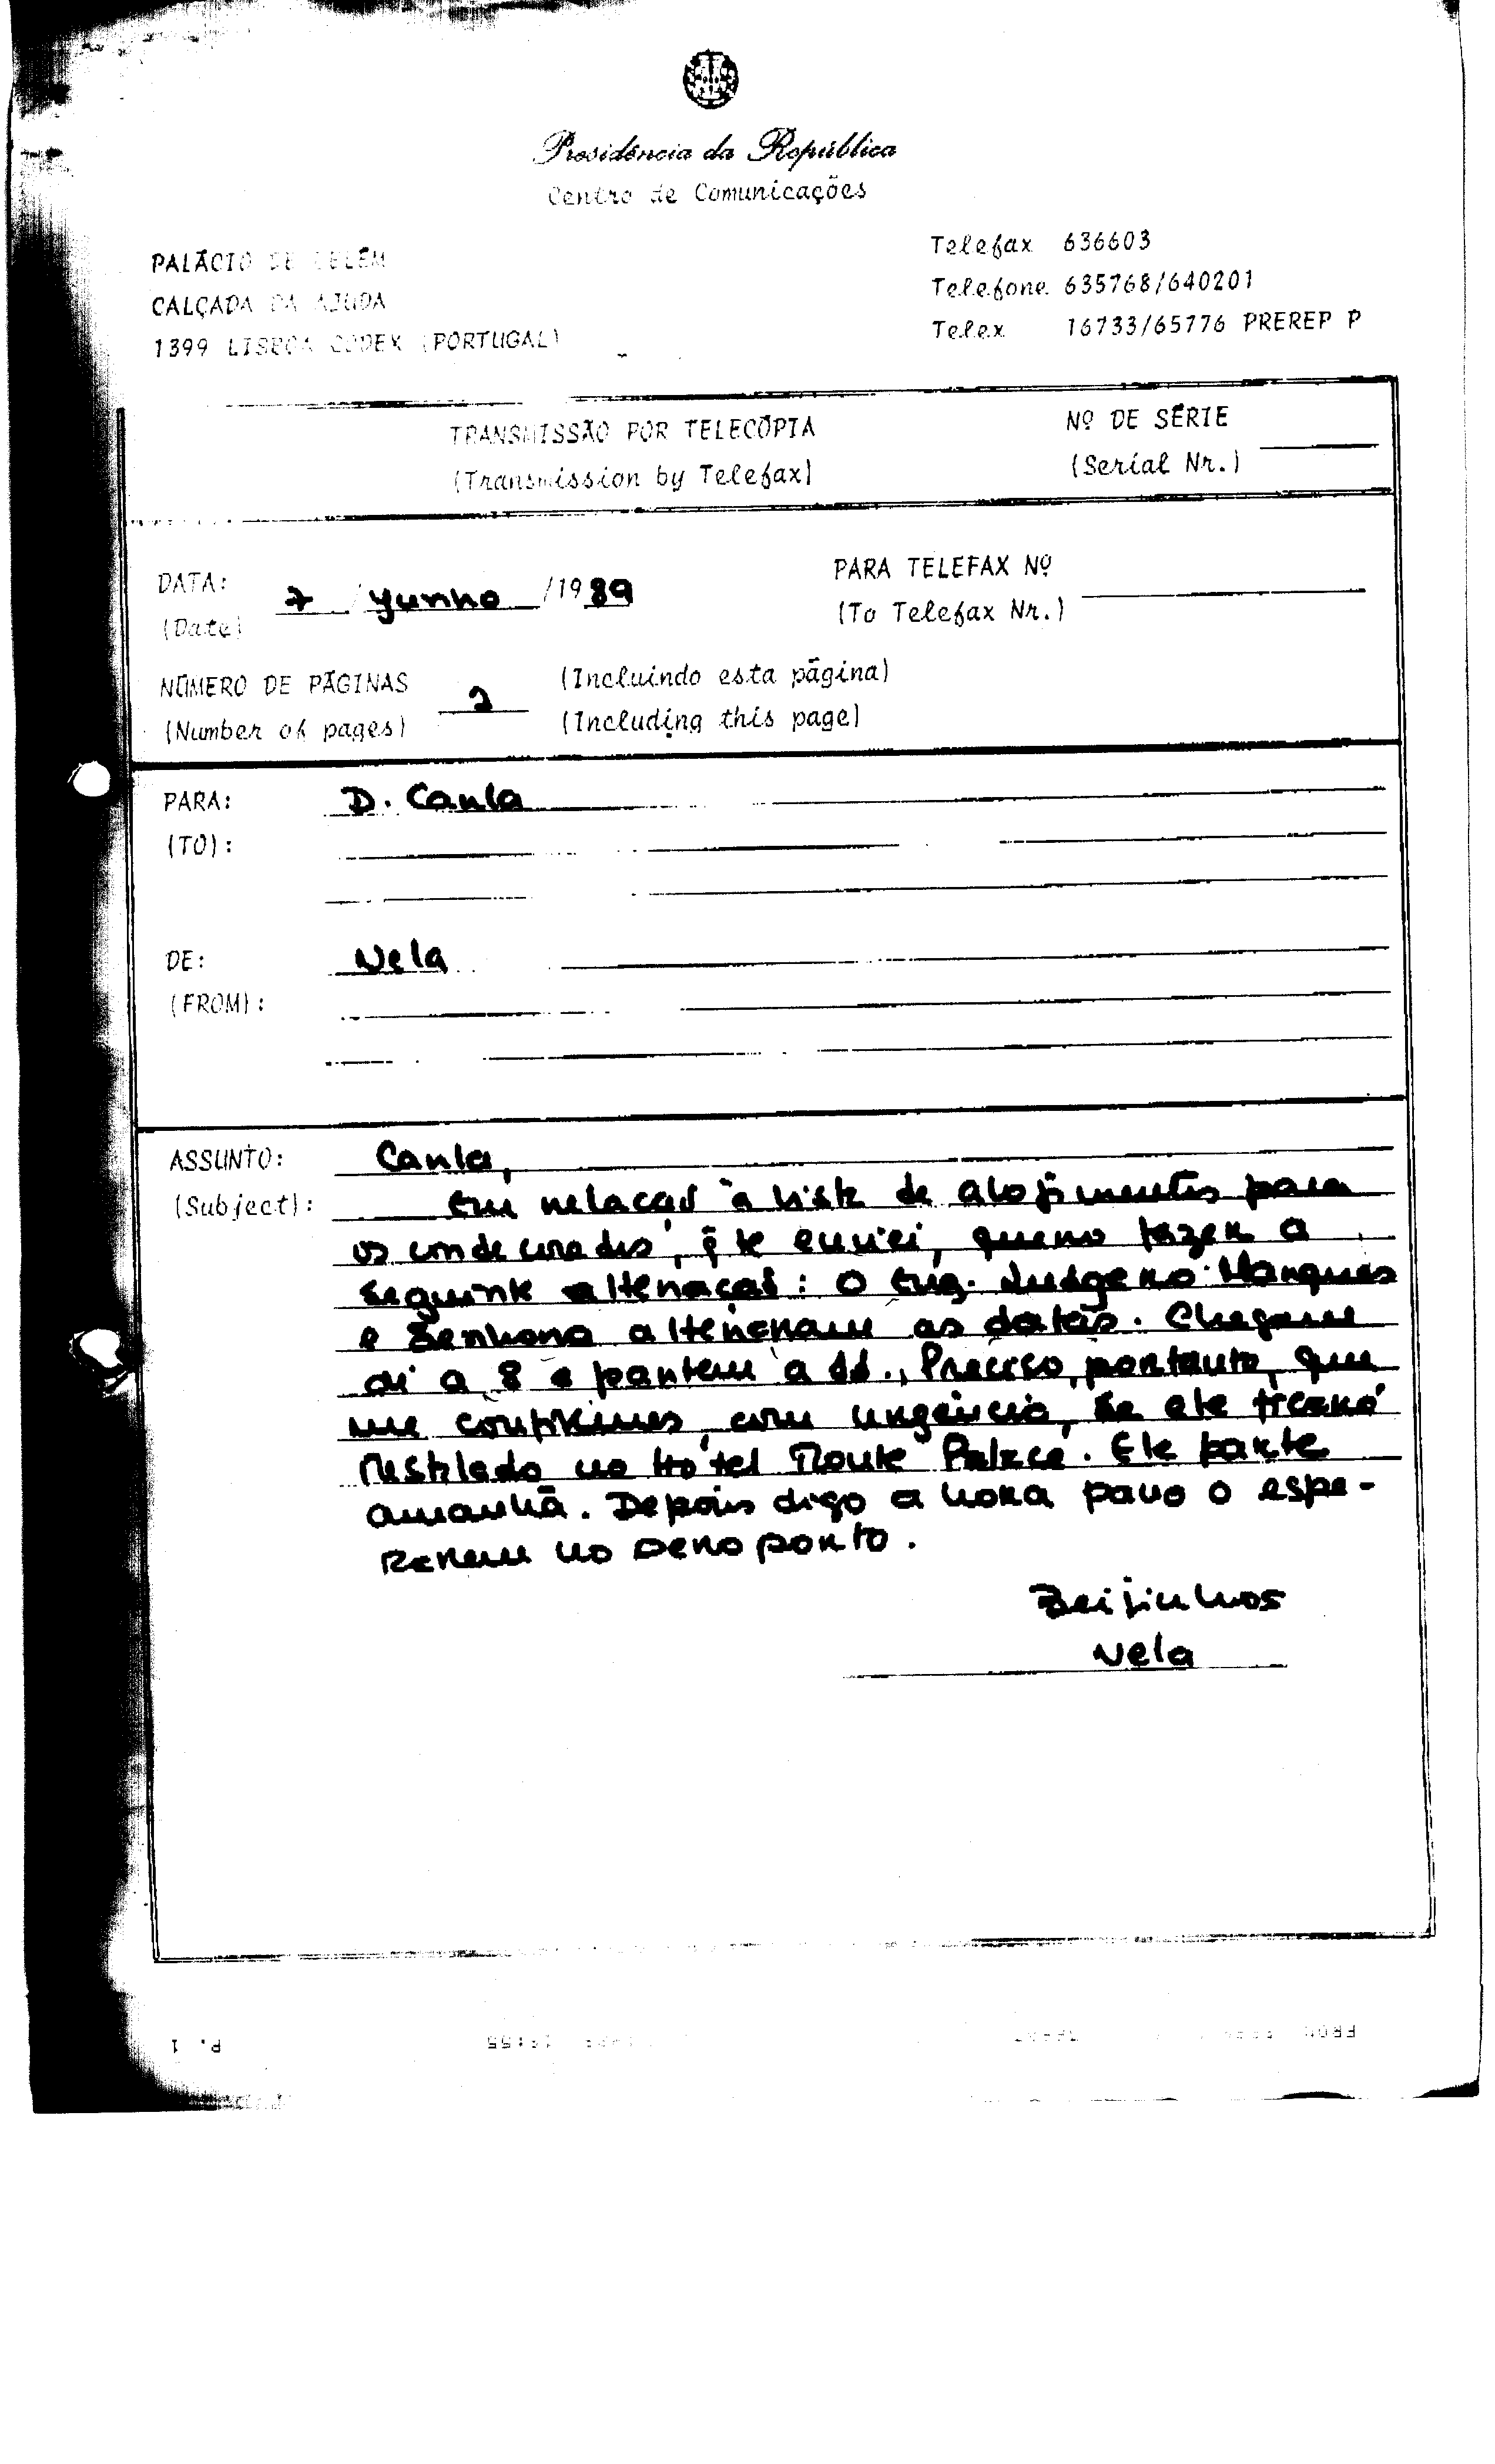 Presidência da República
Centro de Comunicações
PALÁCIO DE BELÉM
CALÇADA DA AJUDA
1399 LISBOA CODEX (PORTUGAL)
Telefax 636603
Telefone 635768/640201
Telex 16733/65776 PREREP P
TRANSMISSÃO POR TELECÓPIA
(Transmission by Telefax)
Nº DE SÉRIE
(Serial Nr.)
DATA: 7 / Junho /1989
(Date)
PARA TELEFAX Nº
(To Telefax Nr.)
NÚMERO DE PÁGINAS 2 (Incluindo esta página)
(Number of pages) (Including this page)
PARA: D. Carla
(TO):
DE: Nela
(FROM):
ASSUNTO: Carla,
(Subject): Em relação à lista de alojamentos para
os condecorados, q̃ te enviei, quero fazer a
seguinte alteração: O Eng. Marques
e Senhora alteraram as datas. Chegam
aí a 8 e partem a 11., Preciso, portanto, que
me confirmes, com urgência, se ele ficará
instalado no Hotel Palace. Ele parte
amanhã. Depois digo a hora para o espe-
rarem no aeroporto.
Beijinhos
Nela
P. 1
FROM